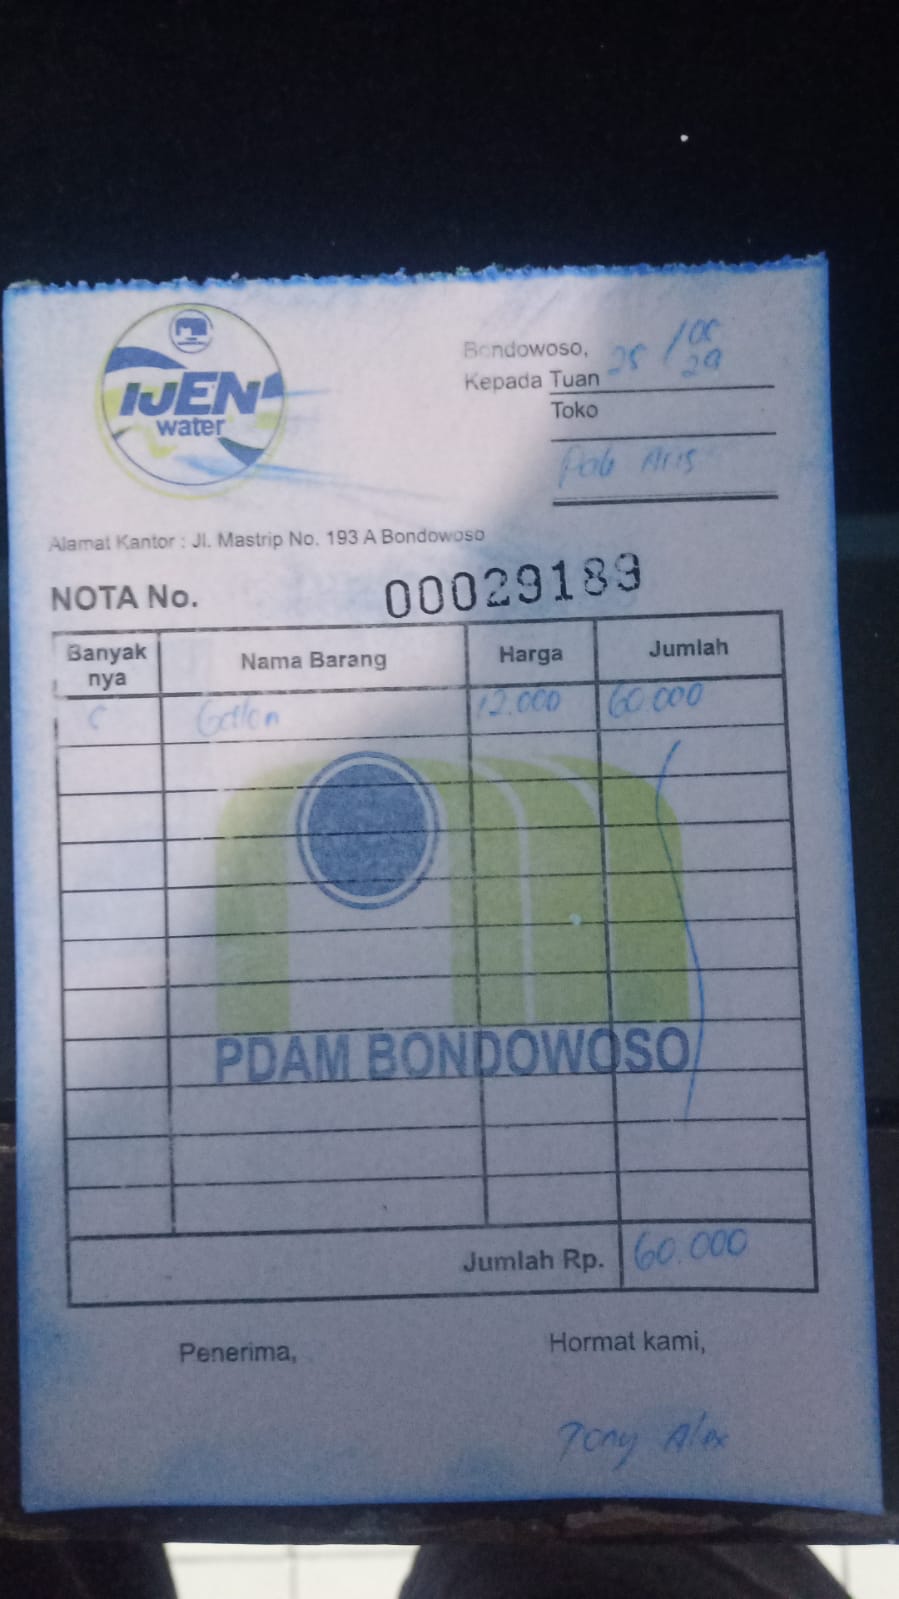 IJEN
water
Bondowoso, 25 /
Kepada Tuan
Toko
Pak Aris
Alamat Kantor : Jl. Mastrip No. 193 A Bondowoso
NOTA No. 00029189
Banyak nya Nama Barang Harga Jumlah
Gallon 12.000 60.000
PDAM BONDOWOSO
Jumlah Rp. 60.000
Penerima, Hormat kami,
Tony Alex